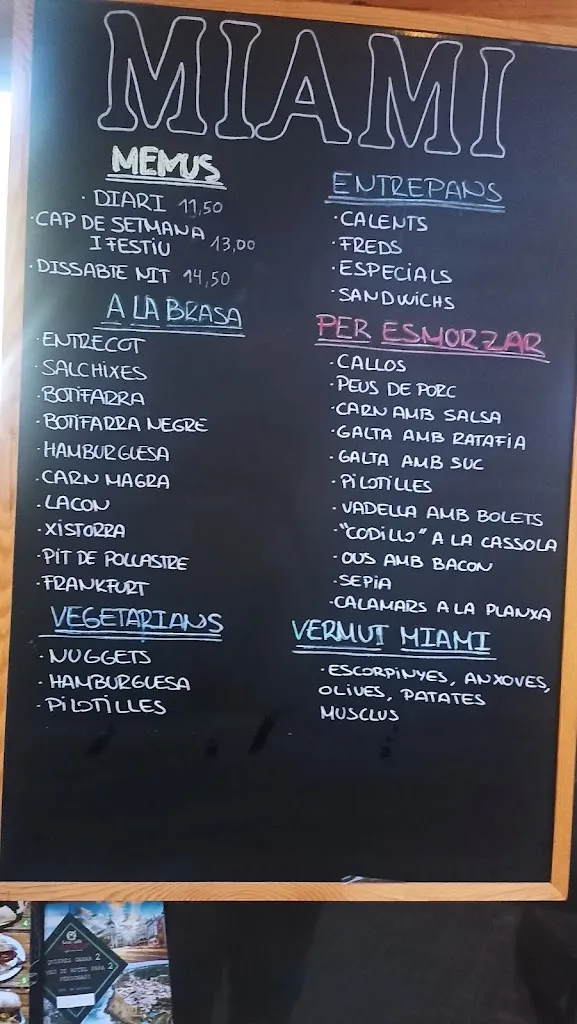 MIAMI
MENUS
· DIARI 11,50
· CAP DE SETMANA
I FESTIU 13,00
· DISSABTE NIT 14,50
A LA BRASA
· ENTRECOT
· SALCHIXES
· BOTIFARRA
· BOTIFARRA NEGRE
· HAMBURGUESA
· CARN MAGRA
· LACON
· XISTORRA
· PIT DE POLLASTRE
· FRANKFURT
VEGETARIANS
· NUGGETS
· HAMBURGUESA
· PILOTILLES
ENTREPANS
· CALENTS
· FREDS
· ESPECIALS
· SANDWICHS
PER ESMORZAR
· CALLOS
· PEUS DE PORC
· CARN AMB SALSA
· GALTA AMB RATAFIA
· GALTA AMB SUC
· PILOTILLES
· VADELLA AMB BOLETS
· "CODILLO" A LA CASSOLA
· OUS AMB BACON
· SEPIA
· CALAMARS A LA PLANXA
VERMUT MIAMI
· ESCORPINYES, ANXOVES,
OLIVES, PATATES
MUSCLUS
2
2